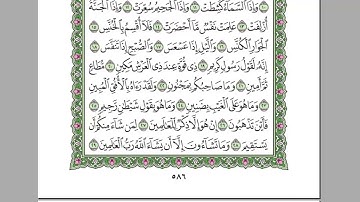 وَإِذَا ٱلسَّمَآءُ كُشِطَتۡ ١١ وَإِذَا ٱلۡجَحِيمُ سُعِّرَتۡ ١٢ وَإِذَا ٱلۡجَنَّةُ
أُزۡلِفَتۡ ١٣ عَلِمَتۡ نَفۡسٞ مَّآ أَحۡضَرَتۡ ١٤ فَلَآ أُقۡسِمُ بِٱلۡخُنَّسِ ١٥
ٱلۡجَوَارِ ٱلۡكُنَّسِ ١٦ وَٱلَّيۡلِ إِذَا عَسۡعَسَ ١٧ وَٱلصُّبۡحِ إِذَا تَنَفَّسَ ١٨
إِنَّهُۥ لَقَوۡلُ رَسُولٖ كَرِيمٖ ١٩ ذِي قُوَّةٍ عِندَ ذِي ٱلۡعَرۡشِ مَكِينٖ ٢٠ مُّطَاعٖ
ثَمَّ أَمِينٖ ٢١ وَمَا صَاحِبُكُم بِمَجۡنُونٖ ٢٢ وَلَقَدۡ رَءَاهُ بِٱلۡأُفُقِ ٱلۡمُبِينِ
٢٣ وَمَا هُوَ عَلَى ٱلۡغَيۡبِ بِضَنِينٖ ٢٤ وَمَا هُوَ بِقَوۡلِ شَيۡطَٰنٖ رَّجِيمٖ ٢٥
فَأَيۡنَ تَذۡهَبُونَ ٢٦ إِنۡ هُوَ إِلَّا ذِكۡرٞ لِّلۡعَٰلَمِينَ ٢٧ لِمَن شَآءَ مِنكُمۡ أَن
يَسۡتَقِيمَ ٢٨ وَمَا تَشَآءُونَ إِلَّآ أَن يَشَآءَ ٱللَّهُ رَبُّ ٱلۡعَٰلَمِينَ ٢٩
٥٨٦